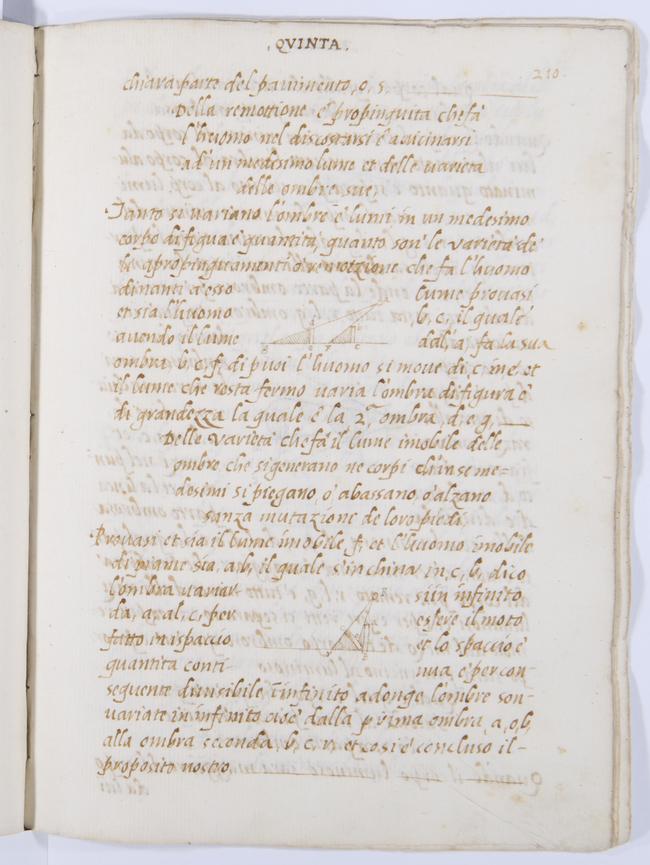 .QVINTA.
210
chiara parte del pauimento, o, s.
Della remottione e propinquita che fa
l'huomo nel discostarsi é auicinarsi
ad'un medesimo lume et delle uarieta
delle ombre sue.
Tanto si uariano l'ombre e lumi in un medesimo
corpo di figura e quantita, quanto son le uarieta de
li apropinquamenti o remotzione che fa l'huomo
dinanti a esso lume prouasi
et sia l'huomo b, c, il quale
auendo il lume dal, a, fa la sua
ombra, b, c, f, di puoi l'huomo si moue di, c in e, et
il lume che resta fermo uaria l'ombra di figura e
di grandezza la quale é la 2ª ombra, d, e, g,
Delle uarieta che fa il lume imobile delle
ombre che si generano ne corpi ch'in se me=
desimi si piegano, o abassano, o alzano
sanza mutazione de loro piedi
Prouasi et sia il lume imobile, f, et l'huomo imobile
di piante sia, a, b, il quale s'inchina in, c, b, dico
l'ombra uariar si in infinito
da, a, al, c, per essere il moto
fatto in ispaccio et lo spaccio é
quantita conti nua, e per con-
seguente diuisibile in infinito adonqe l'ombre son-
uariate in infinito cioé dalla prima ombra, a, o, b,
alla ombra seconda, b, c, r, et cosi é concluso il-
proposito nostro